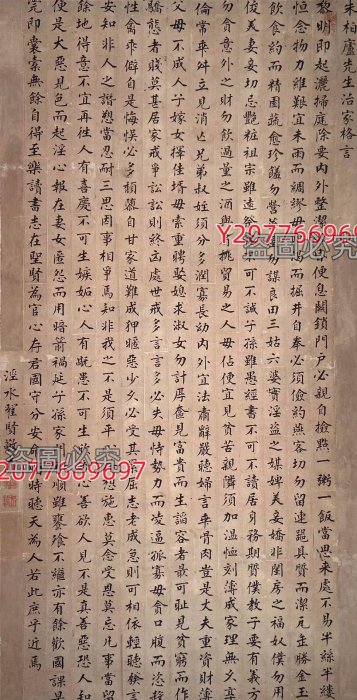 朱柏廬先生治家格言
黎明即起灑掃庭除要內外整潔既昏便息關鎖門戶必親自檢點一粥一飯當思來處不易半絲半縷
恒念物力維艱宜未雨而綢繆毋臨渴而掘井自奉必須儉約燕客切勿留連器具質而潔瓦缶勝金玉
飲食約而精園蔬愈珍饈勿營華屋勿謀良田三姑六婆實淫盜之媒婢美妾嬌非閨房之福奴僕勿用
俊美妻妾切忌艷粧祖宗雖遠祭祀不可不誠子孫雖愚經書不可不讀居身務期質樸教子要有義方
勿貪意外之財勿飲過量之酒與挑貿易之人毋佔便宜見貧苦親隣須加溫恤刻薄成家理無久享
倫常乖舛立見消亡兄弟叔姪須分多潤寡長幼內外宜法肅辭嚴聽婦言乖骨肉豈是丈夫重資財薄
父母不成人子嫁女擇佳壻毋索重聘娶媳求淑女勿計厚奩見富貴而生諂容者最可耻見貧窮而作
驕態者賤莫甚居家戒爭訟訟則終凶處世戒多言言多必失毋恃勢力而凌逼孤寡毋貪口腹而恣殺
牲禽乖僻自是悔悞必多頹墮自甘家道難成狎暱惡少久必受其累屈志老成急則可相依輕聽發言
安知非人之譖愬當忍耐三思因事相爭焉知非我之不是須平心再想施惠莫念受恩莫忘凡事當留
餘地得意不宜再徃人有喜慶不可生嫉妬心人有既患不可生喜幸心善欲人見不是真善惡恐人知
便是大惡見色而起淫心報在妻女匿怨而用暗箭禍延子孫家門和順雖饔飱不繼亦有餘歡國課早
完即囊橐無餘自得至樂讀書志在聖賢為官心存君國守分安命順時聽天為人若此庶乎近焉
涇水翟賢
Y2077669697
盜圖必究
2077669697
盜圖必究